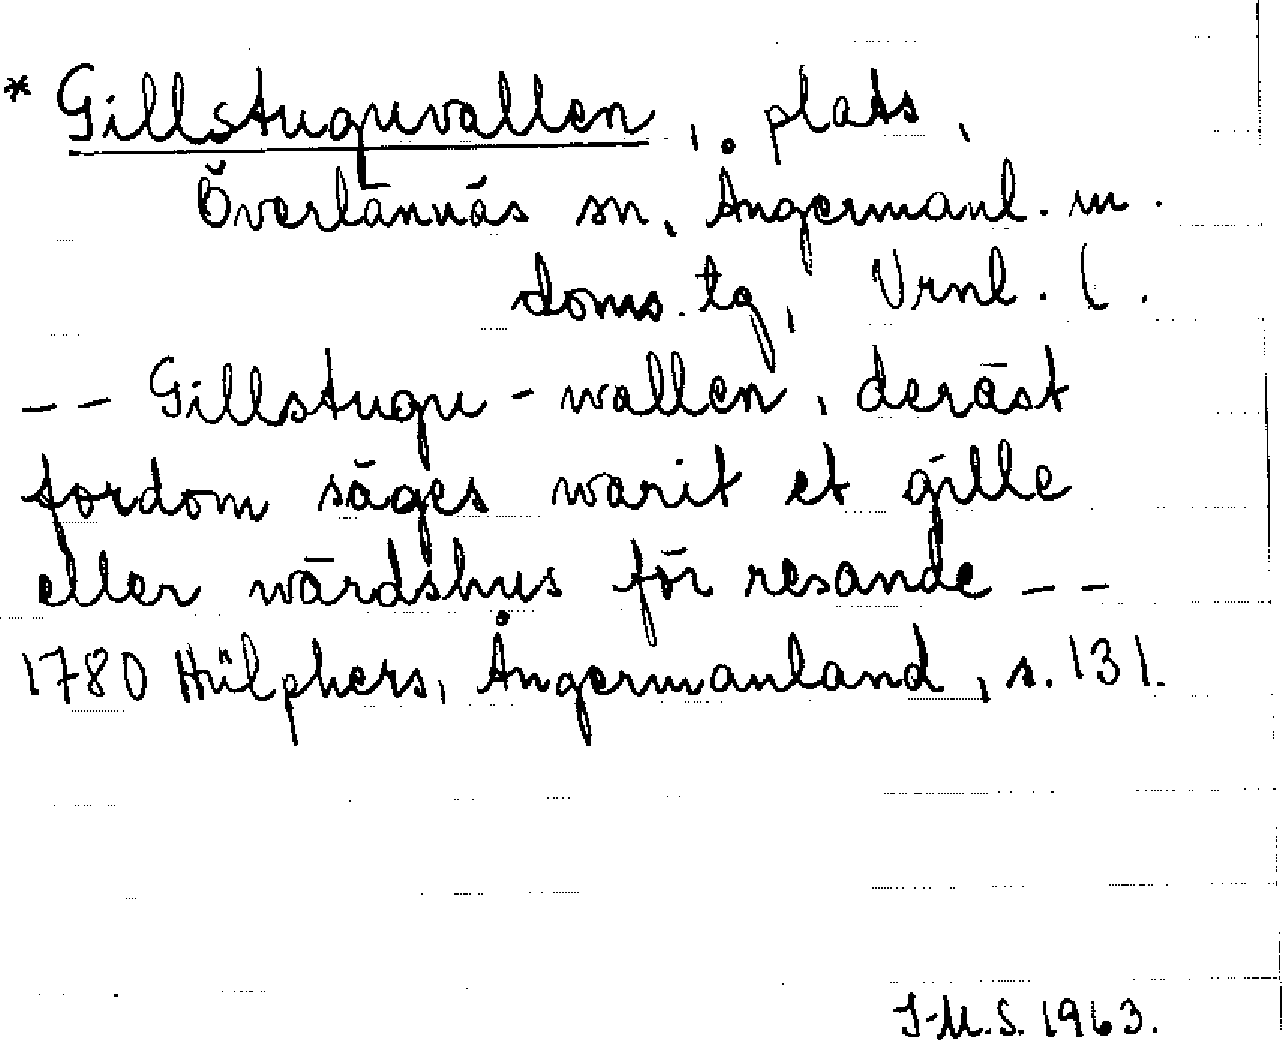 * Gillstuguvallen, plats,
Överlännäs sn, Ångermanl. m.
doms. tg, Vrnl. l.
-- Gillstugu-wallen, deräst
fordom säges warit et gille
eller wärdshus för resande --
1780 Hülphers, Ångermanland, s. 131.
I-M.S. 1963.